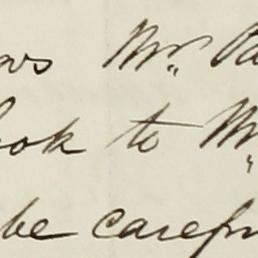 ows Mr. Pa
ook to M
be carefu